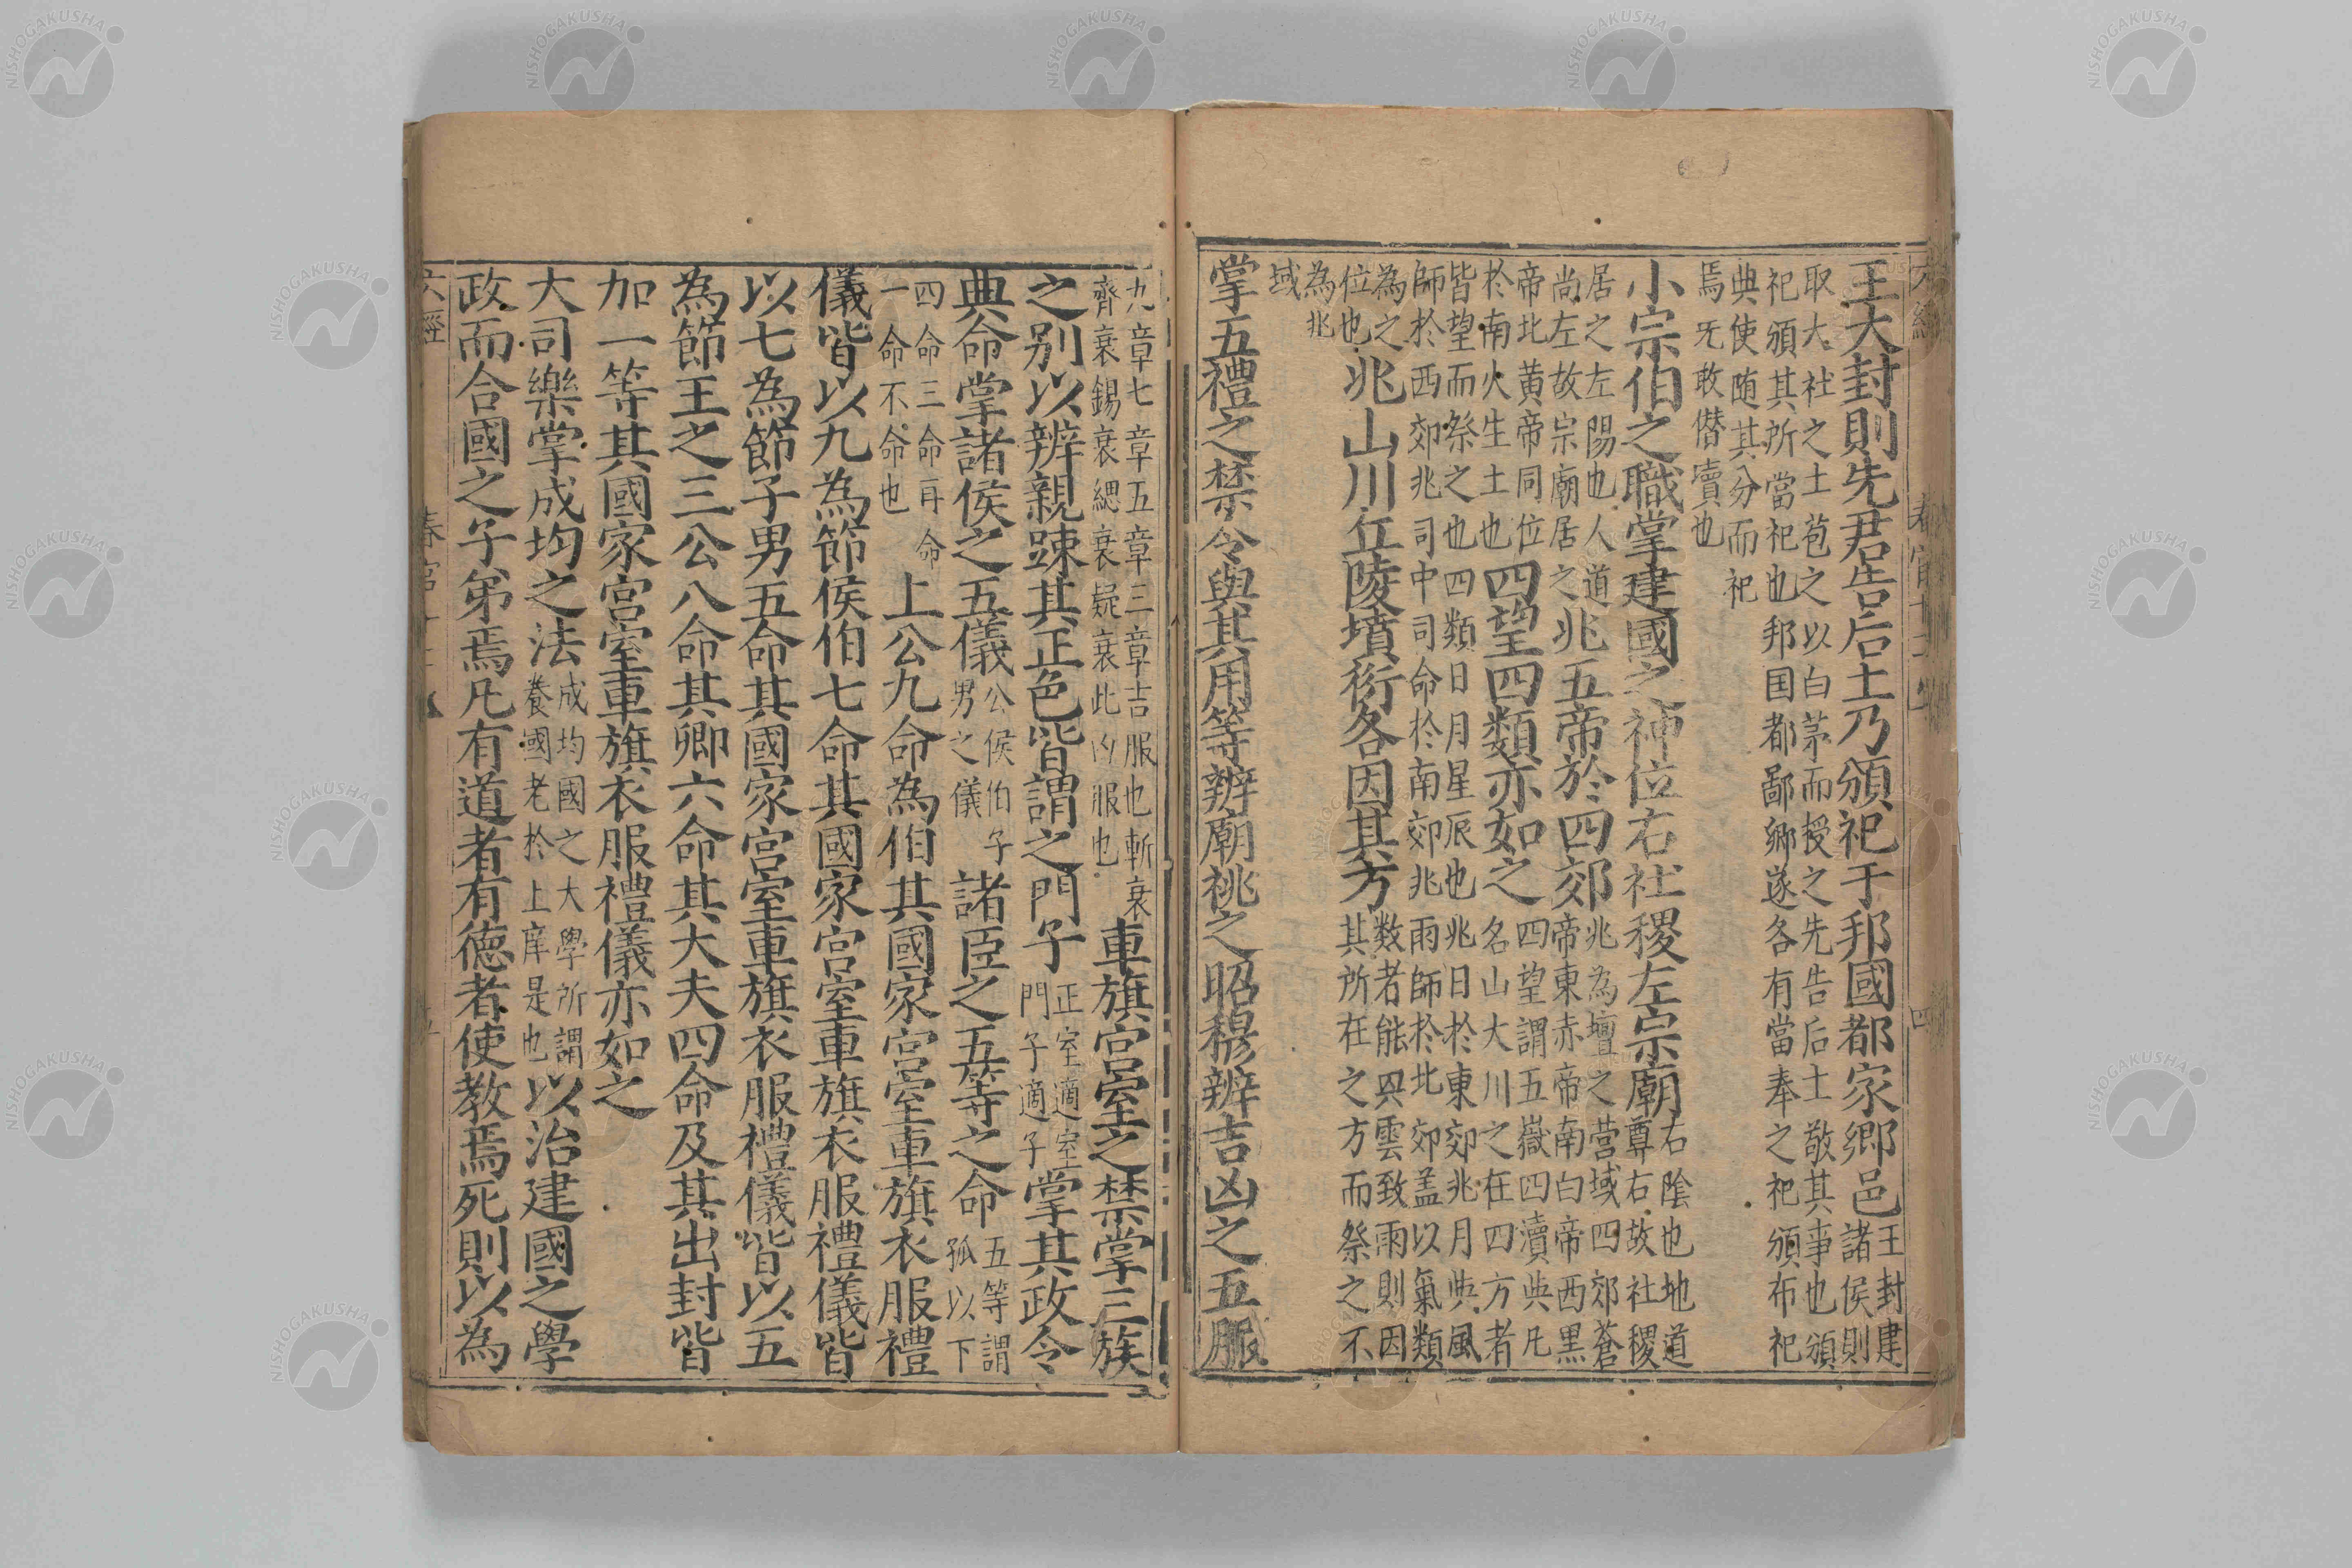 王大封則先君告后土乃頒祀于邦國都家鄉邑
王封建
諸侯則
取大社之土苞之以白茅而授之先告后土敬其事也頒
祀頒其所當祀也邦国都鄙鄉遂各有當奉之祀頒布祀
典使随其分而祀
焉旡敢僭瀆也
小宗伯之職掌建國之神位右社稷左宗廟
右陰也地道
尊右故社稷
居之左陽也人道
尚左故宗廟居之
兆五帝於四郊
兆為壇之营域四郊蒼
帝東赤帝南白帝西黑
帝北黄帝同位
於南火生土也
四望四類亦如之
四望謂五嶽四瀆典凡
名山大川之在四方者
皆望而祭之也四類日月星辰也兆日於東郊兆月典風
師於西郊兆司中司命於南郊兆雨師於北郊盖以氣類
為之
位也
兆山川丘陵墳衍各因其方
数者能典雲致雨則因
其所在之方而祭之不
為兆
域
掌五禮之禁令與其用等辨廟祧之昭穆辨吉凶之五服
九章七章五章三章吉服也斬衰
齊衰錫衰緦衰疑衰此凶服也
車旗宮室之禁掌三族
之別以辨親踈其正色皆謂之門子
正室適室
門子適子
掌其政令
典命掌諸侯之五儀
公侯伯子
男之儀
諸臣之五等之命
五等謂
孤以下
四命三命再命
一命不命也
上公九命為伯其國家宮室車旗衣服禮
儀皆以九為節侯伯七命其國家宮室車旗衣服禮儀皆
以七為節子男五命其國家宮室車旗衣服禮儀皆以五
為節王之三公八命其卿六命其大夫四命及其出封皆
加一等其國家宮室車旗衣服禮儀亦如之
大司樂掌成均之法
成均國之大學所謂
養國老於上庠是也
以治建國之學
政而合國之子弟焉凡有道者有德者使教焉死則以為
六經
NISHOGAKUSHA